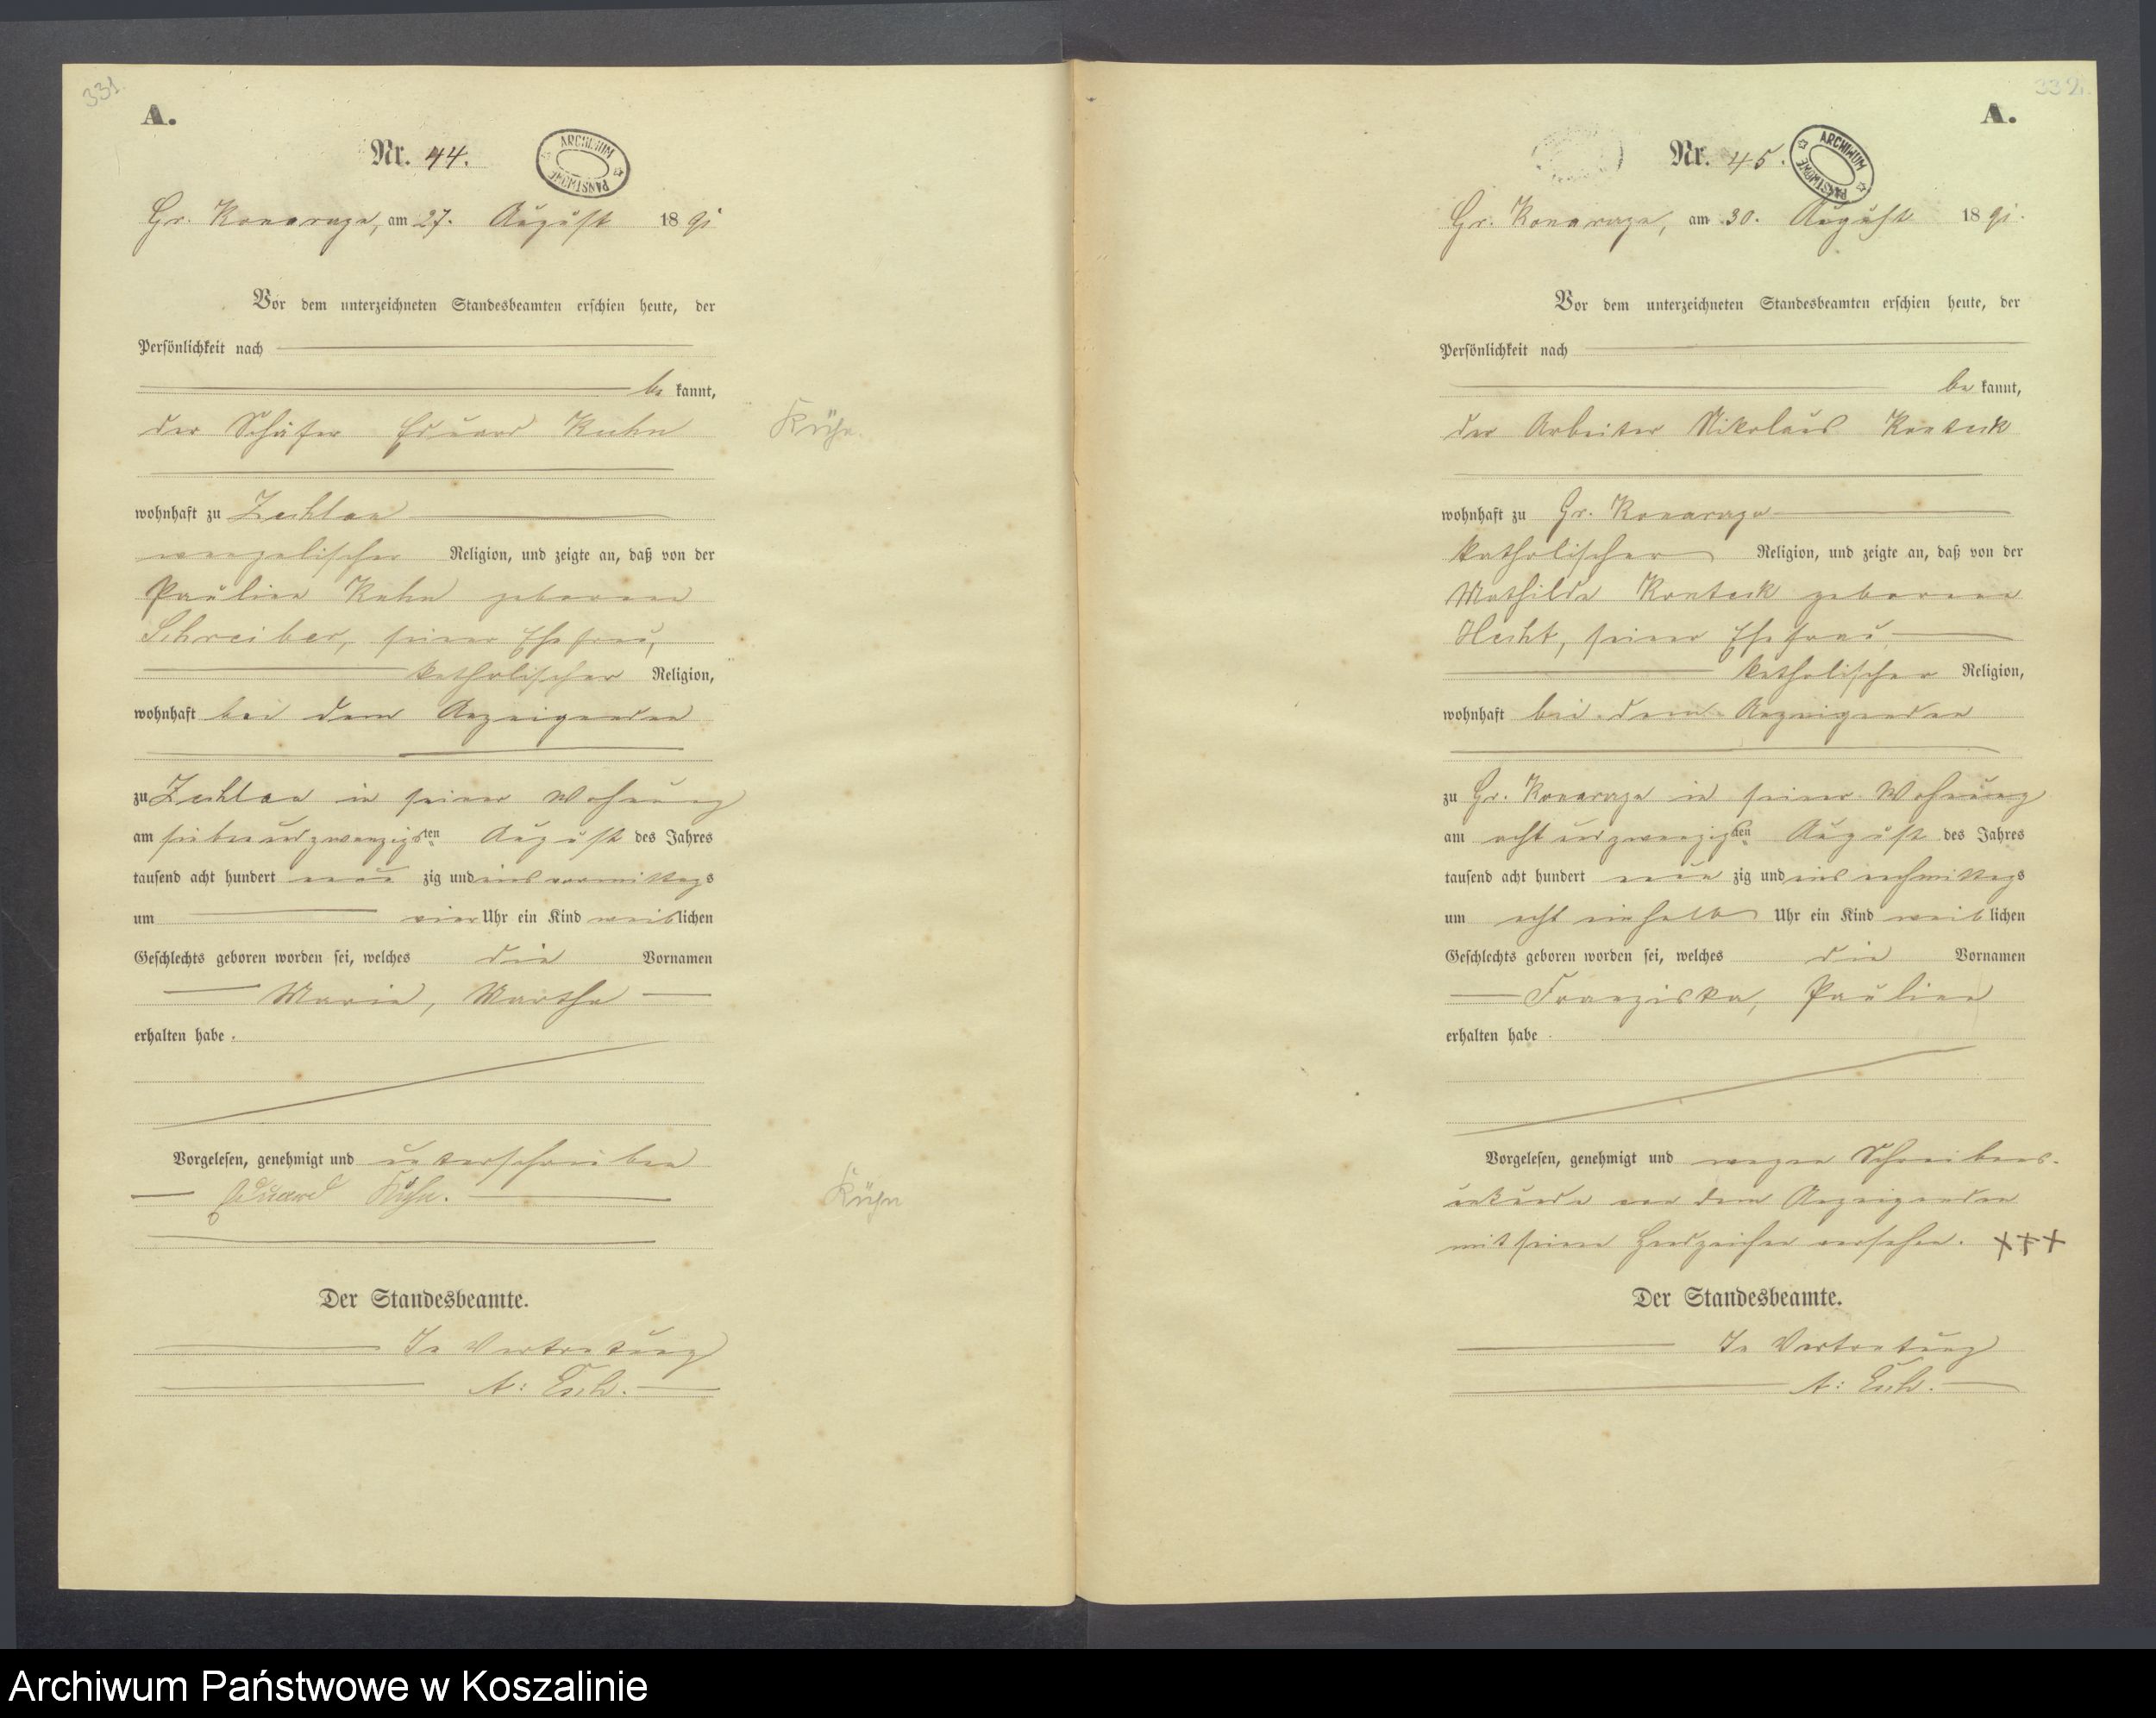 331.
A.
Nr. 44.
ARCHIWUM PAŃSTWOWE
Gr. Konarzyn, am 27. August 1891
Vor dem unterzeichneten Standesbeamten erschien heute, der
Persönlichkeit nach
be kannt,
der Schäfer Eduard Kuhn
Kühn
wohnhaft zu Zechlau
evangelischer Religion, und zeigte an, daß von der
Pauline Kuhn geborene
Schreiber, seiner Ehefrau,
katholischer Religion,
wohnhaft bei dem Anzeigenden
zu Zechlau in seiner Wohnung
am siebenundzwanzigsten August des Jahres
tausend acht hundert neun zig und eins vormittags
um vier Uhr ein Kind weiblichen
Geschlechts geboren worden sei, welches die Vornamen
Maria, Martha
erhalten habe.
Vorgelesen, genehmigt und unterschrieben
Eduard Kühn.
Kühn
Der Standesbeamte.
In Vertretung
A:
332.
A.
Nr. 45.
ARCHIWUM PAŃSTWOWE
Gr. Konarzyn, am 30. August 1891.
Vor dem unterzeichneten Standesbeamten erschien heute, der
Persönlichkeit nach
be kannt,
der Arbeiter Nikolaus
wohnhaft zu Gr. Konarzyn
katholischer Religion, und zeigte an, daß von der
Mathilde geborene
Hecht, seiner Ehefrau
katholischer Religion,
wohnhaft bei dem Anzeigenden
zu Gr. Konarzyn in seiner Wohnung
am achtundzwanzigsten August des Jahres
tausend acht hundert neun zig und eins nachmittags
um acht einhalb Uhr ein Kind weiblichen
Geschlechts geboren worden sei, welches die Vornamen
Franziska, Pauline
erhalten habe
Vorgelesen, genehmigt und wegen Schreibens-
unkunde von dem Anzeigenden
mit seinem Handzeichen versehen. +++
Der Standesbeamte.
In Vertretung
A:
Archiwum Państwowe w Koszalinie